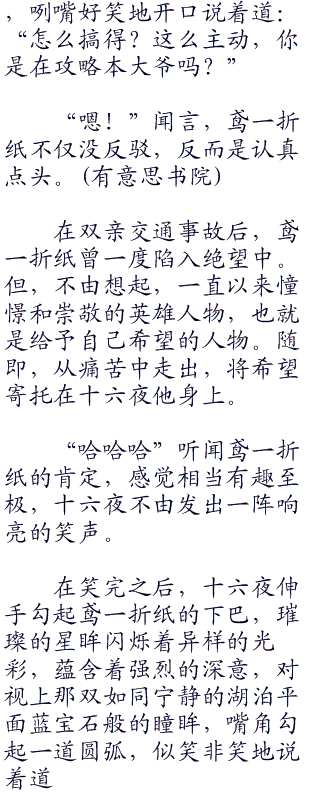 ，咧嘴好笑地开口说着道：
“怎么搞得？这么主动，你
是在攻略本大爷吗？”
“嗯！”闻言，鸢一折
纸不仅没反驳，反而是认真
点头。(有意思书院)
在双亲交通事故后，鸢
一折纸曾一度陷入绝望中。
但，不由想起，一直以来憧
憬和崇敬的英雄人物，也就
是给予自己希望的人物。随
即，从痛苦中走出，将希望
寄托在十六夜他身上。
“哈哈哈”听闻鸢一折
纸的肯定，感觉相当有趣至
极，十六夜不由发出一阵响
亮的笑声。
在笑完之后，十六夜伸
手勾起鸢一折纸的下巴，璀
璨的星眸闪烁着异样的光
彩，蕴含着强烈的深意，对
视上那双如同宁静的湖泊平
面蓝宝石般的瞳眸，嘴角勾
起一道圆弧，似笑非笑地说
着道